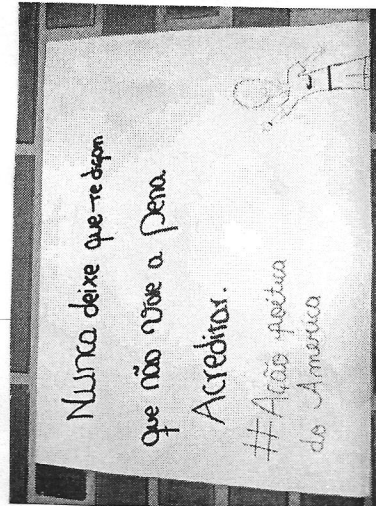 Nunca deixe que te digam
que não vale a pena
Acreditar.
#Ação poética
do America